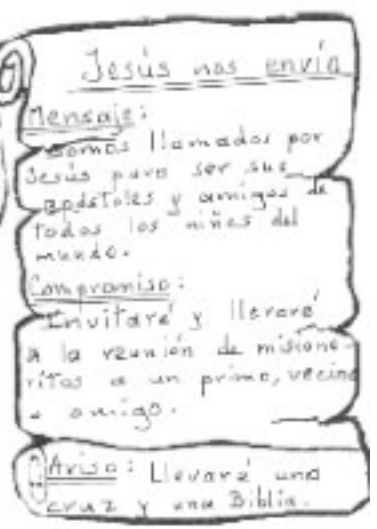 Jesús nos envía
Mensaje:
Somos llamados por
Jesús para ser sus
apóstoles y amigos de
todos los niños del
mundo.
Compromiso:
Invitaré y llevaré
a la reunión de misione-
ritos a un primo, vecino
o amigo.
Aviso: Llevaré una
cruz y una Biblia.